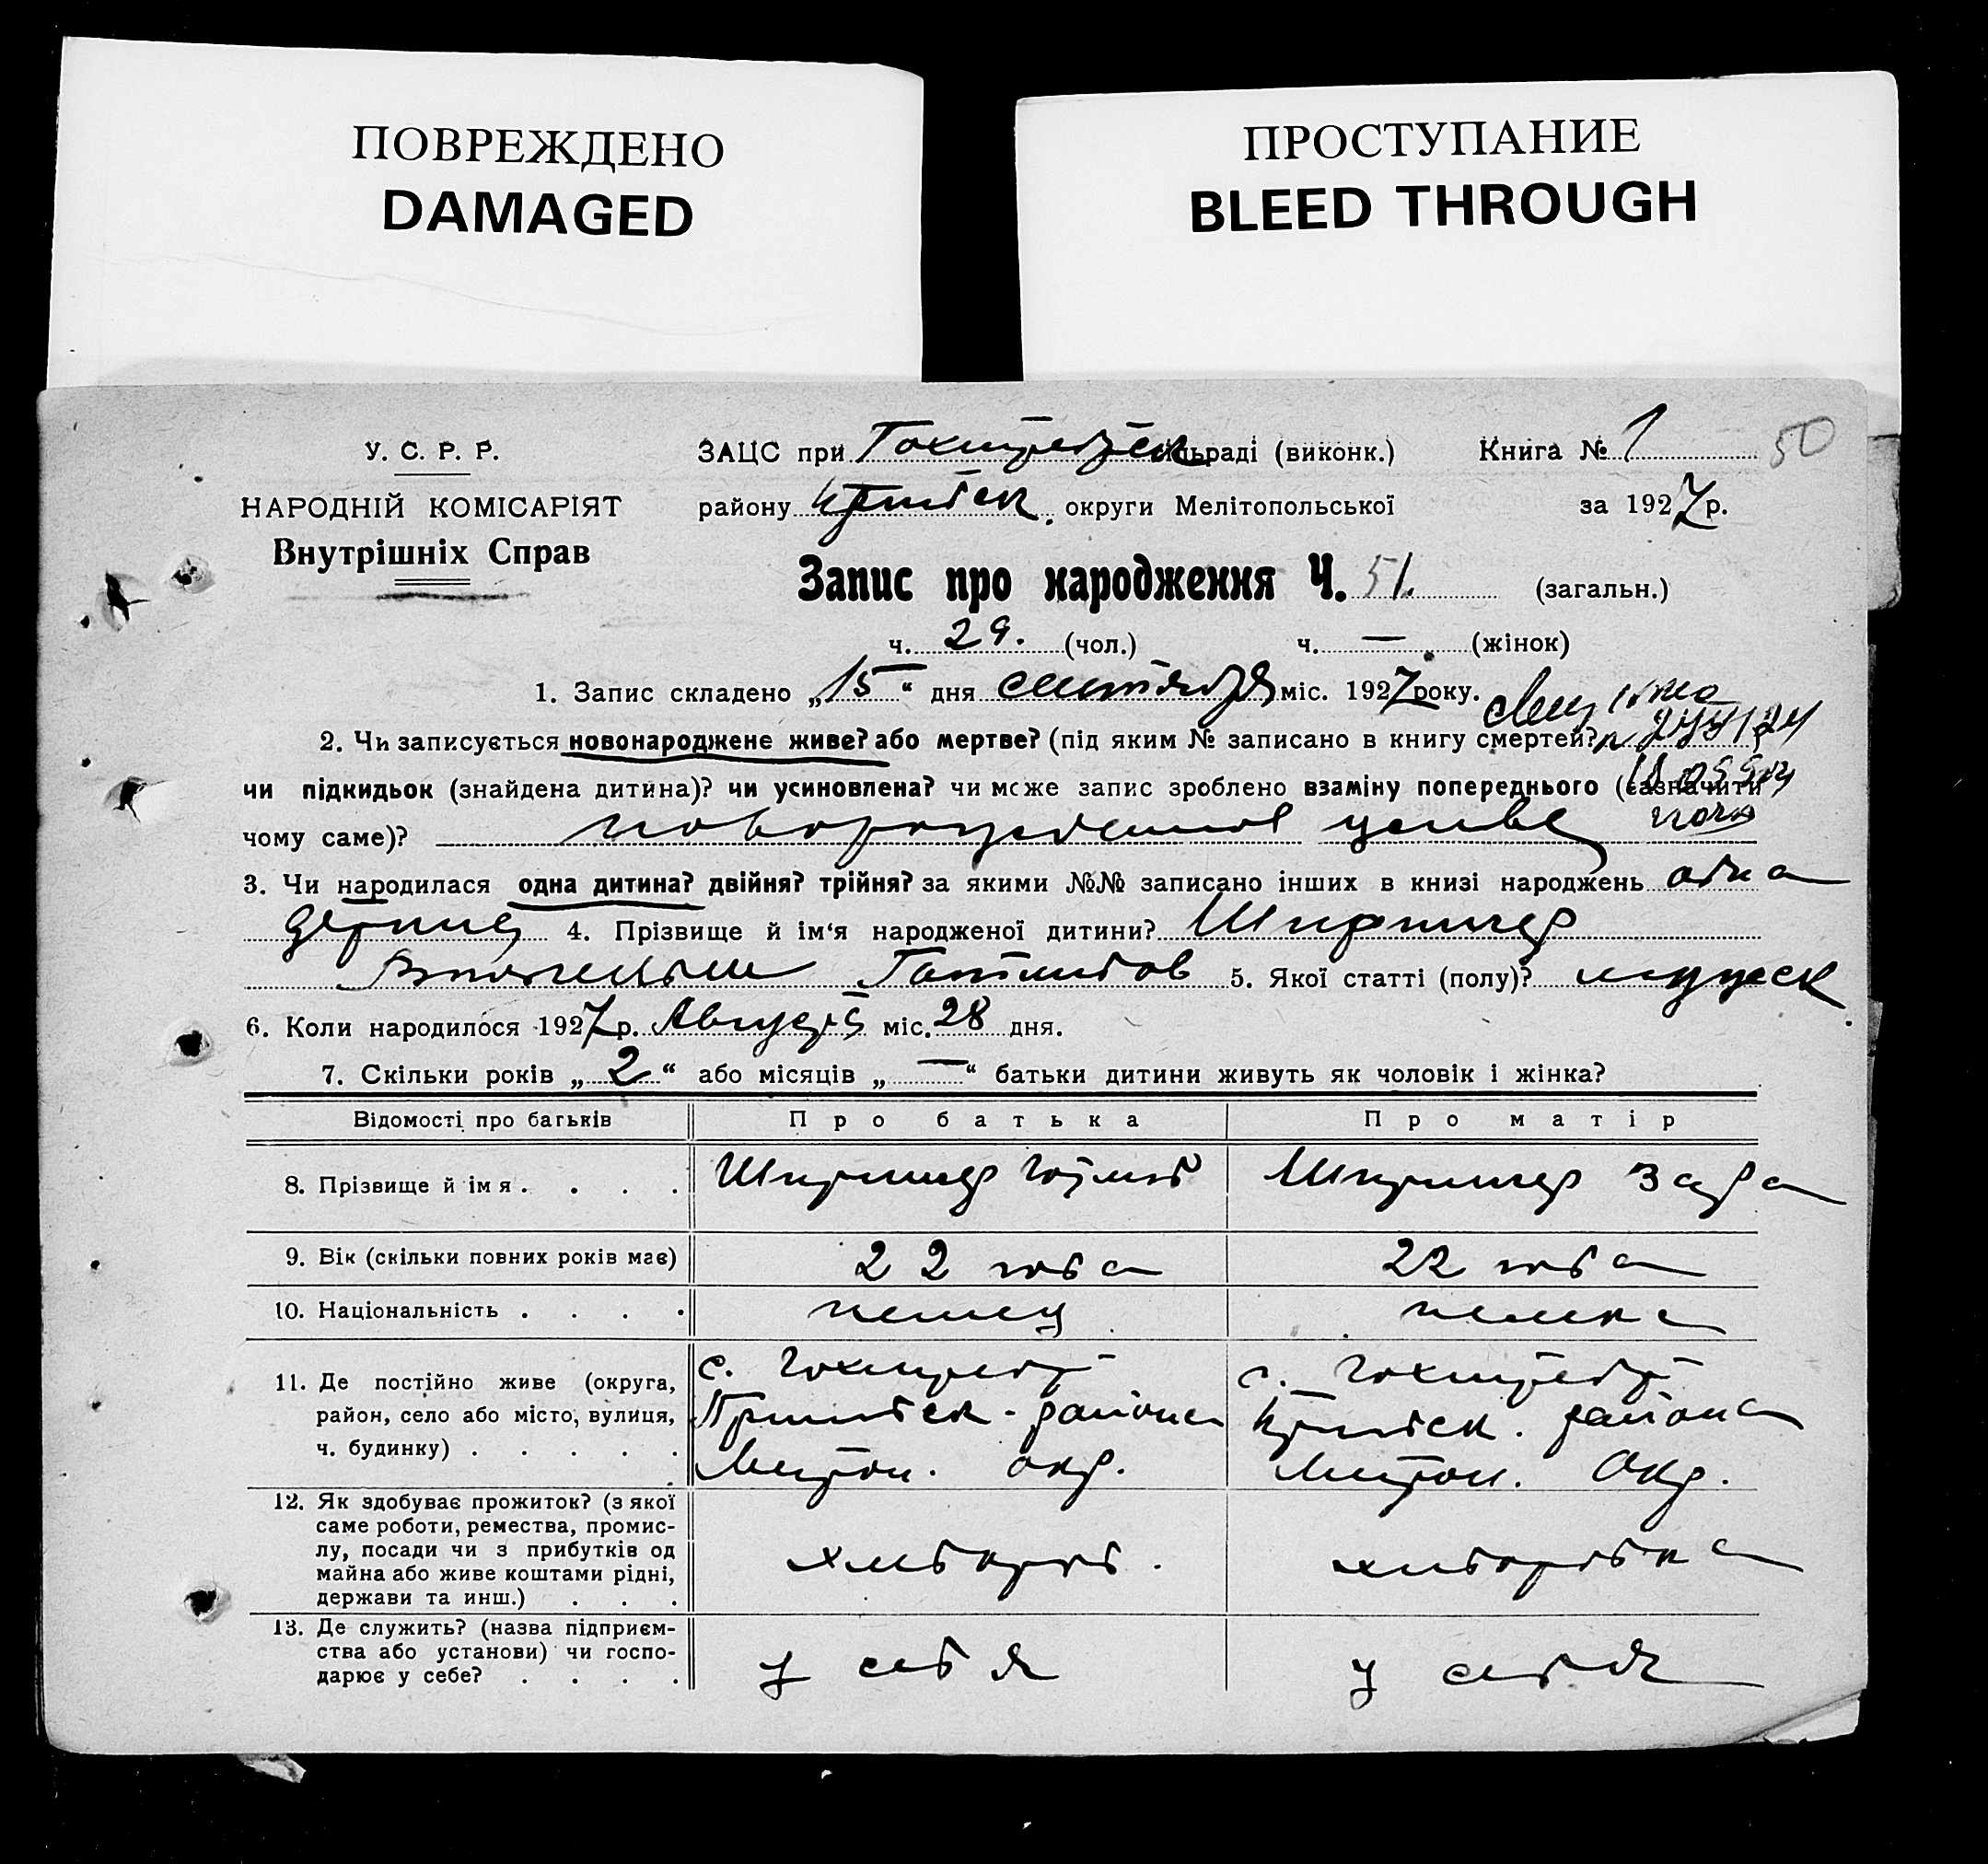 ПОВРЕЖДЕНО
DAMAGED
ПРОСТУПАНИЕ
BLEED THROUGH
У. С. Р. Р.
НАРОДНІЙ КОМІСАРІЯТ
Внутрішніх Справ
ЗАЦС при Гохштедтск льраді (виконк.) Книга № 1 50
району Пришибск. округи Мелітопольської за 1927 р.
Запис про народження Ч. 51. (загальн.)
ч. 29. (чол.) ч. — (жінок)
1. Запис складено „15“ дня сентября міс. 1927 року.
2. Чи записується новонароджене живе? або мертве? (під яким № записано в книгу смертей?
чи підкидьок (знайдена дитина)? чи усиновлена? чи може запис зроблено взаміну попереднього (зазначити
чому саме)? новорожденное живое
3. Чи народилася одна дитина? двійня? трійня? за якими №№ записано інших в книзі народжень одна
4. Прізвище й ім‘я народженої дитини?
5. Якої статті (полу)? мужеск
6. Коли народилося 1927 р. Августа міс. 28 дня.
7. Скільки років „2“ або місяців „—“ батьки дитини живуть як чоловік і жінка?
Відомості про батьків Про батька Про матір
8. Прізвище й імя . . . .
9. Вік (скільки повних років має) 22 года 22 года
10. Національність . . . . немец немка
11. Де постійно живе (округа, с. Гохштедт с. Гохштедт
район, село або місто, вулиця, Пришибск. района Пришибск. района
ч. будинку) . . . . . Мелитоп. окр. Мелитоп. Окр.
12. Як здобуває прожиток? (з якої
саме роботи, ремества, промис-
лу, посади чи з прибутків од хлебороб. хлеборобка
майна або живе коштами рідні,
держави та инш.) . . .
13. Де служить? (назва підприєм-
ства або установи) чи госпо- у себя у себя
дарює у себе? . . . .